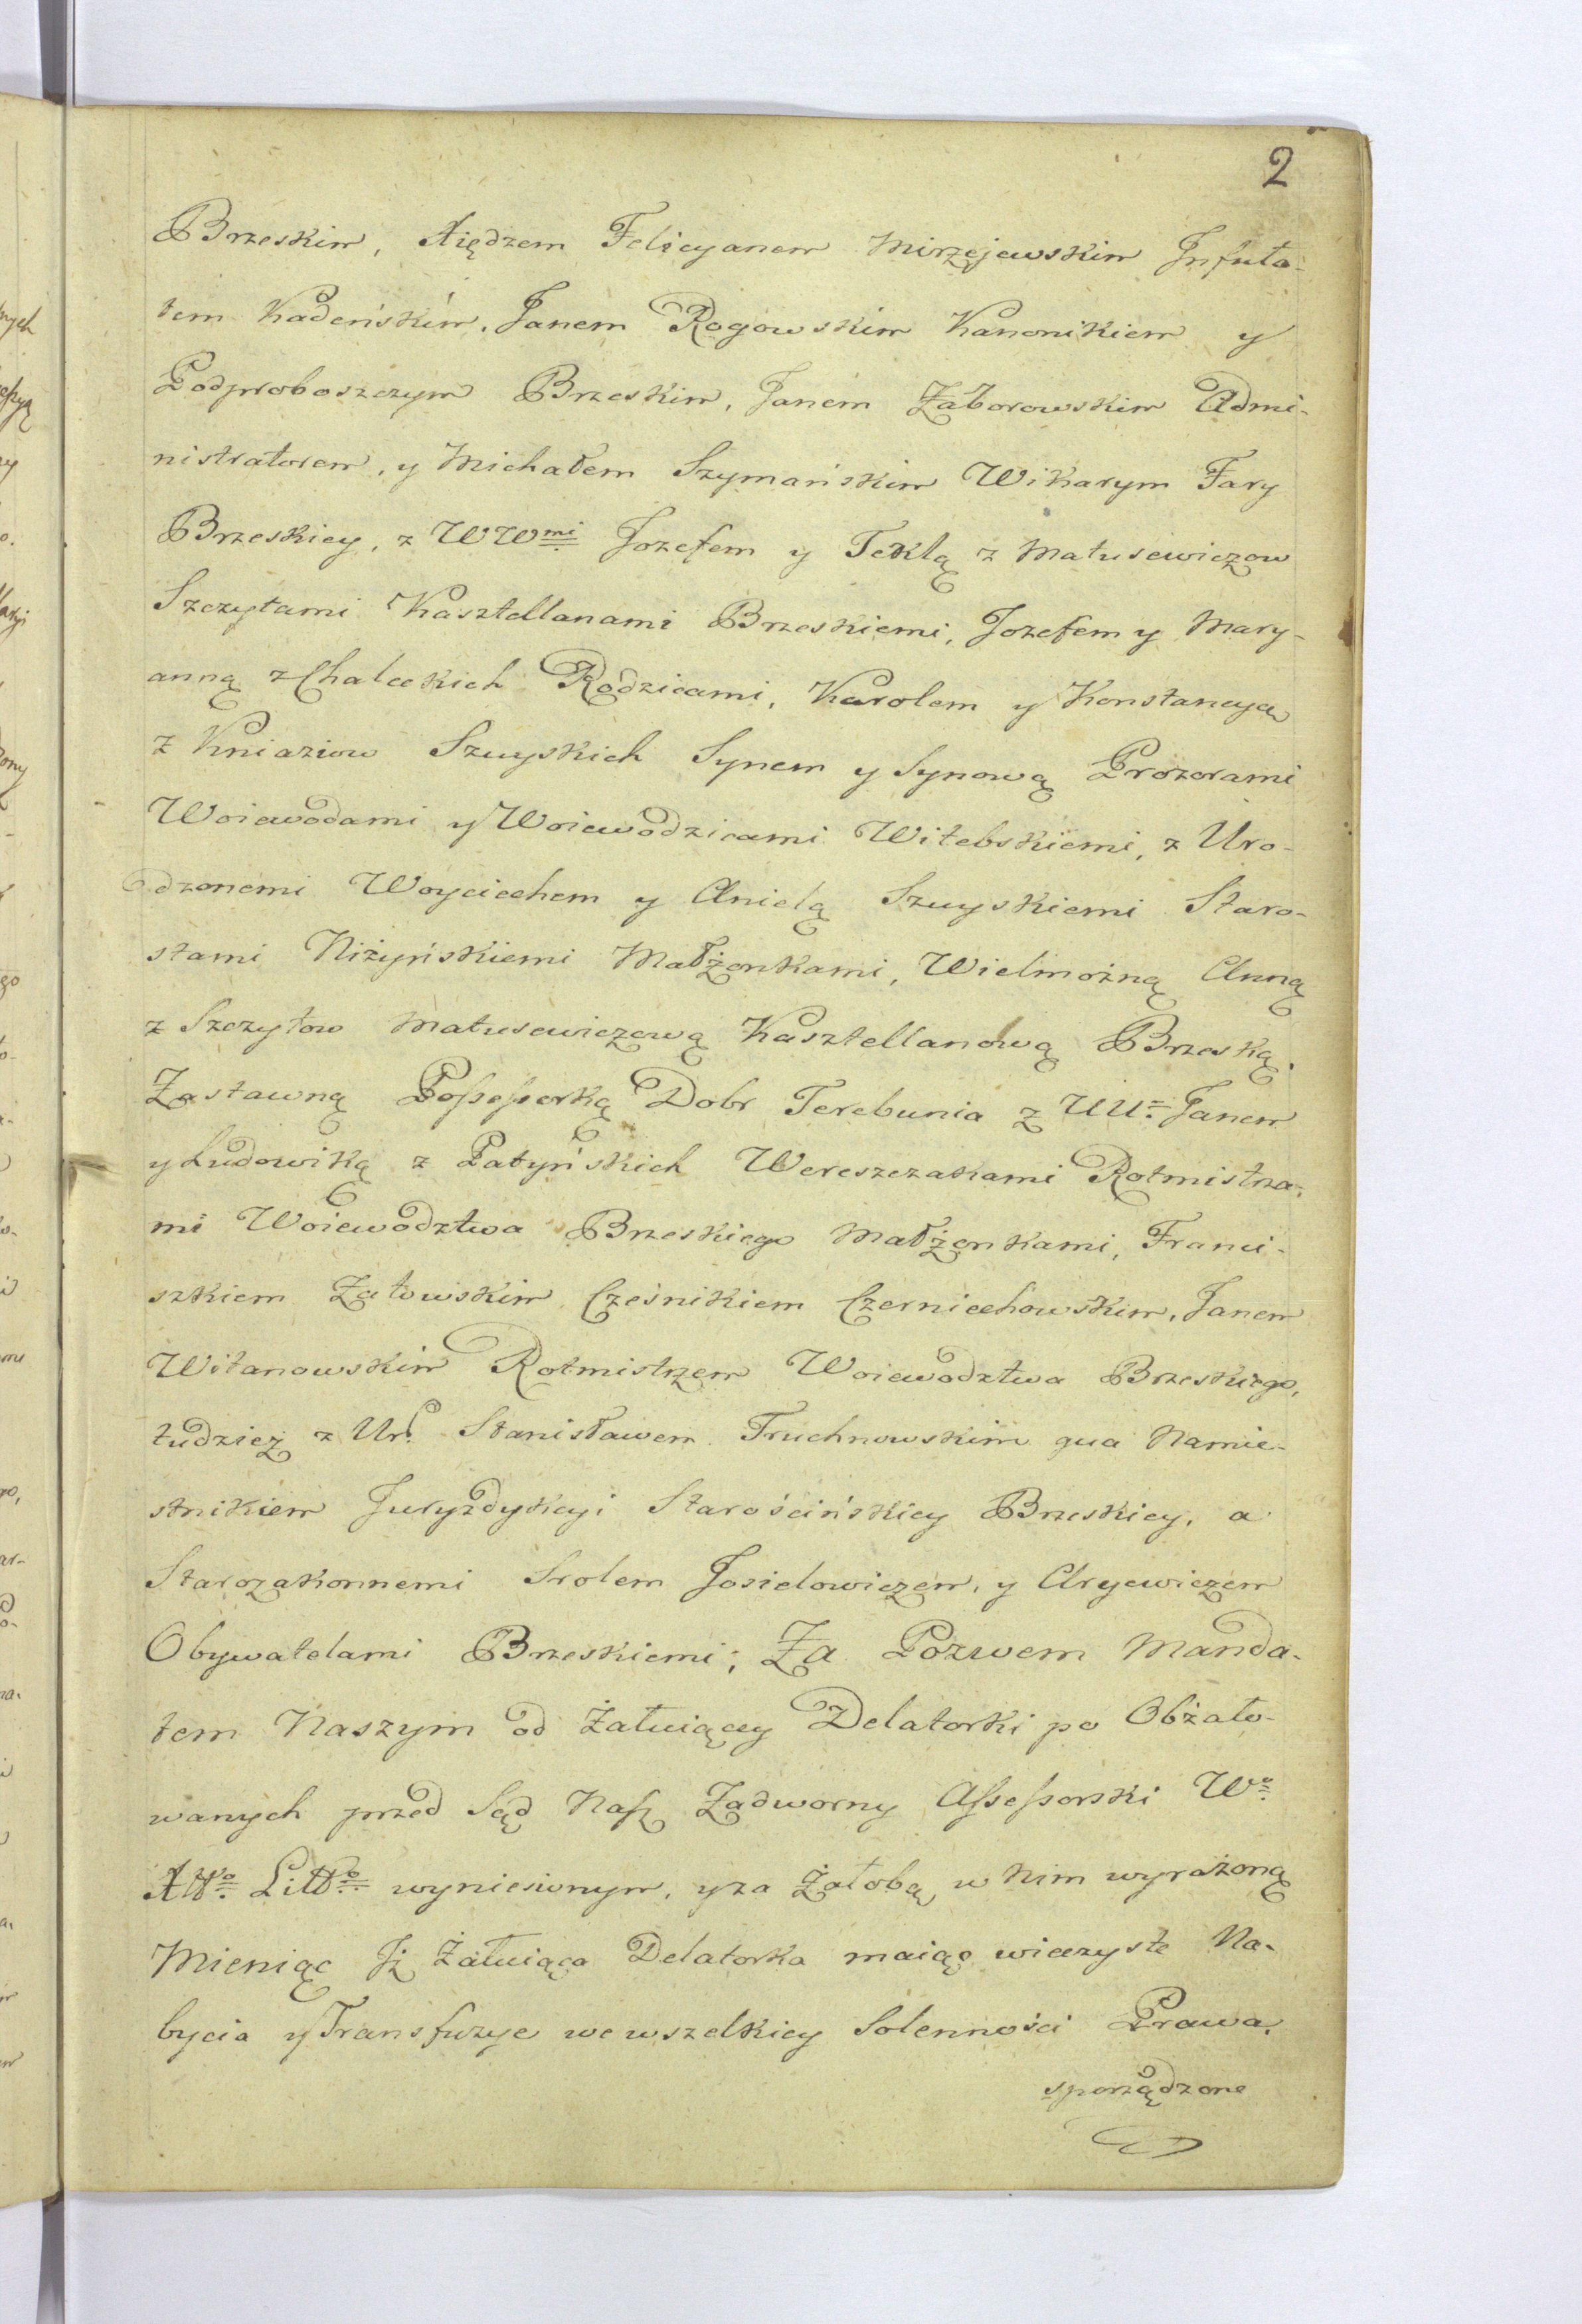 2
Brzeskim, Xiędzem Felicyanem Mierzejewskim Infuła-
tem Kadeńskim, Janem Rogowskim Kanonikiem y
Podproboszczym Brzeskim, Janem Zaborowskim Admi-
nistratorem, y Michałem Szymańskim Wikarym Fary
Brzeskiey, z WWmi Jozefem y Teklą z Matusewiczow
Szczytami Kasztellanami Brzeskiemi, Jozefem y Mary-
anną z Chaleckich Rodzicami, Karolem y Konstancyą
z Kniaziow Szuyskich Synem y Synową Prozorami
Woiewodami y Woiewodzicami Witebskiemi, z Uro-
dzonemi Woyciechem y Anielą Szuyskiemi Staro-
stami Niżyńskiemi Małżonkami, Wielmożną Anną
z Szczytow Matusewiczową Kasztellanową Brzeską,
Zastawną Possessorką Dobr Terebunia z UU: Janem
y Ludowiką z Patyńskich Wereszczakami Rotmistrza-
mi Woiewodztwa Brzeskiego Małżonkami, Franci-
szkiem Załuwskim Cześnikiem Czerniechowskim, Janem
Witanowskim Rotmistrzem Woiewodztwa Brzeskiego,
tudziez z Urd. Stanisławem Truchnowskim qua Namie-
stnikiem Juryzdykcyi Starościńskiey Brzeskiey, a
Starozakonnemi Srolem Josielowiczem, y Aryewiczem
Obywatelami Brzeskiemi; Za Pozwem Manda-
tem Naszym od Żałuiącey Delatorki po Obżało-
wanych przed Sąd Nasz Zadworny Assessorski Wo
Xtwo Littwo wyniesionym, y za Żałobą w nim wyrażoną
Mieniąc Jż Żałuiąca Delatorka maiąc wieczyste Na-
bycia y Transfuzye we wszelkiey Solenności Prawa,
sporządzone